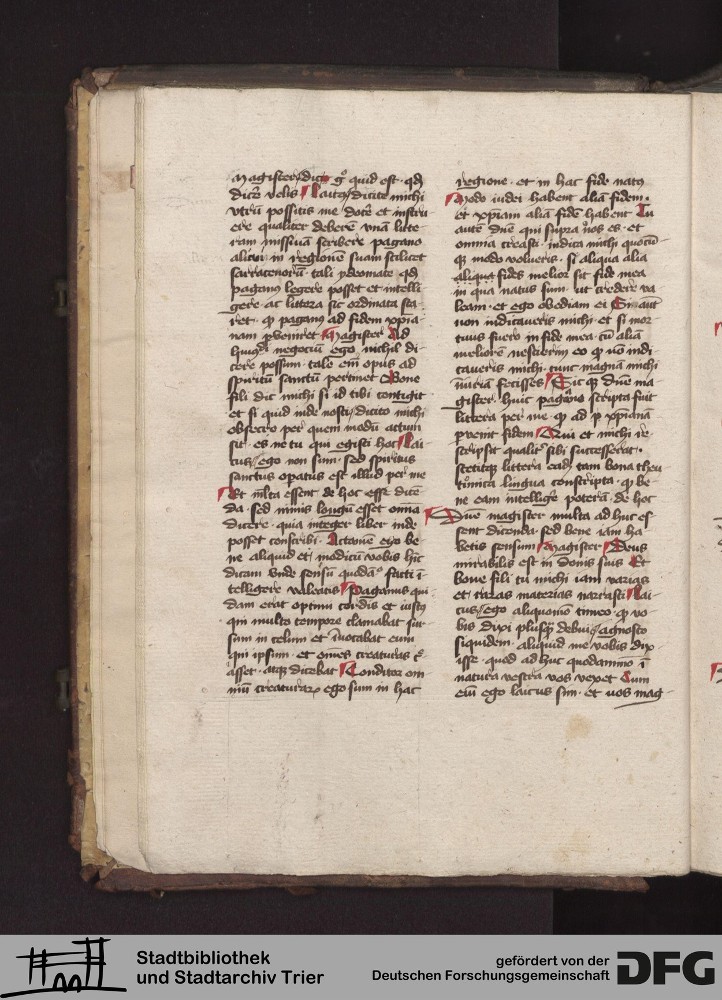 magister dico gͦ quid est qđ
dicē velis Laicꝰ dicite michi
vtrū possitis me docē et instru
ere qualiter deberē vnā litte
ram missiuā scribere pagano
alicui in regionē suam scilicet
sarracenorū tali ydeomate qđ
paganꝰ legere posset et intelli
gere ac littera sic ordinata sta
ret ꝙ paganꝰ ad fidem xp̄ia
nam ꝑveniret Magister Ad
huiꝰ negociū ego nichil di
cere possum tale em̄ opus ad
spiritū sanctū pertinet Bone
fili dic michi si id tibi contigit
et si quid inde nosti dicito michi
obsecro per quem modū actum
sit es ne tu qui egisti hoc Lai
cus ego non sum sed spiritus
sanctus opatus est illud per me
Et m̄lta essent de hoc esse dicē
da sed nimis longū esset omnia
dicere quia integer liber inde
posset conscribi Attamē ego be
ne aliquid et modicū vobis hic
dicam vnde sensū quodāo facti ī
telligere valeatis Paganus qui
dam erat optimi cordis et iustꝰ
qui multo tempore clamabat sur
sum in celum et īuocabat eum
qui ipsum et om̄es creaturas cͤ
asset atqꝫ dicebat Conditor om
niū creaturaꝝ ego sum in hac
regione et in hac fide natꝰ
Modo iudei habent aliā fidem
et xp̄iani aliā fidē habent Tu
autē dn̄e qui supra nos es et
omnia creasti indica michi quocū
qꝫ modo volueris si aliqua alia
aliqua fides melior sit fide mea
in qua natus sum ut credere va
leam et ego obediam ei Si aut̄
non indicaueris michi et si mor
tuus fuero in fide mea cū aliā
meliorē nescierim eo ꝙ nō indi
caueris michi tunc magnā michi
iniuriā fecisses Sic qꝫ dn̄e ma
gister huic pagano scripta fuit
littera per me ꝙ ad p xp̄ianā
ꝑvenit fidem Qui et michi re
scripsit qualit̄ sibi successerat
stetitqꝫ littera ead̄ tam bona theu
tūnica lingua conscripta ꝙ be
ne eam intellige poterā de hoc
Dn̄e magister multa ad huc es
sent dicenda sed bene iam ha
betis sensum Magister Deus
mirabilis est in donis suis Et
bone fili tu michi iam varias
et raras materias narrasti Lai
cus ego aliquomō timeo ꝙ vo
bis dixi plusqꝫ debui agnosco
siquidem aliquid me vobis dix
isse quod ad huc quodammo ī
natura vestra vos vexet Cum
em̄ ego laicus sim et uos mag
Stadtbibliothek
und Stadtarchiv Trier
gefördert von der
Deutschen Forschungsgemeinschaft DFG